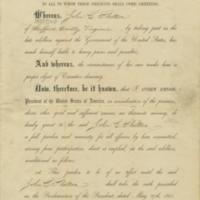 TO ALL TO WHOM THESE PRESENTS SHALL COME, GREETING:
Whereas,
of County, Virginia by taking part in the
late rebellion against the Government of the United States, has
made himself liable to heavy pains and penalties;
And whereas, the circumstances of his case render him a
proper object of Executive clemency;
Now, therefore, be it known, that I ANDREW JOHNSON,
President of the United States of America, in consideration of the premises,
divers other good and sufficient reasons me thereunto moving, do
hereby grant to the said
a full pardon and amnesty for all offences by him committed,
arising from participation, direct or implied, in the said rebellion,
conditioned as follows:
1st. This pardon to be of no effect until the said
shall take the oath prescribed
in the Proclamation of the President, dated May 29th, 1865.